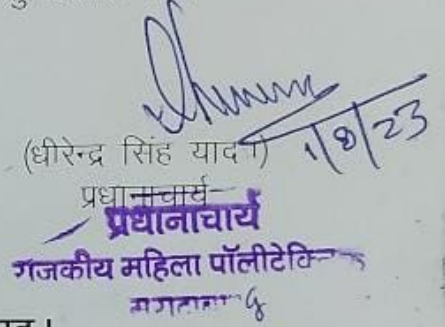 1/8/23
(धीरेन्द्र सिंह यादव)
प्रधानाचार्य
प्रधानाचार्य
राजकीय महिला पॉलीटेक्नि